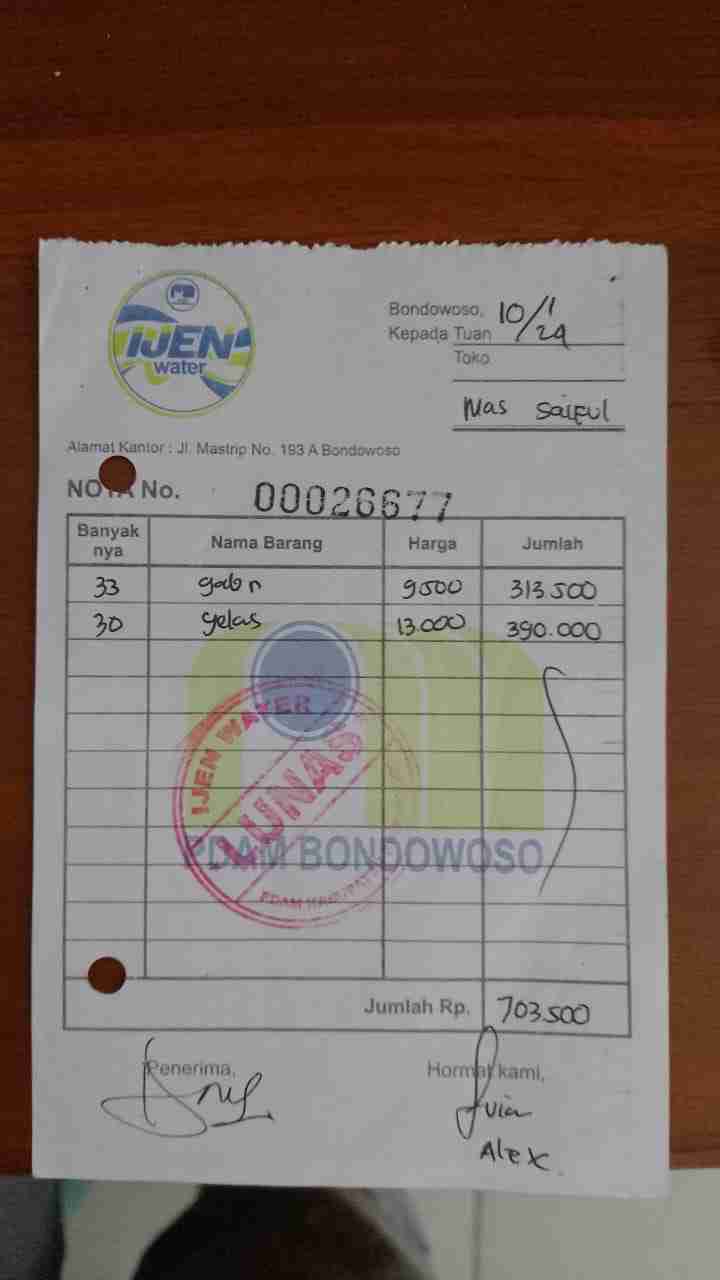 IJEN
water
Bondowoso, 10/1/24
Kepada Tuan
Toko
Mas Saiful
Alamat Kantor : Jl. Mastrip No. 193 A Bondowoso
NOTA No. 00026677
Banyak nya Nama Barang Harga Jumlah
33 galon 9.500 313.500
30 gelas 13.000 390.000
IJEN WATER
LUNAS
PDAM BONDOWOSO
PDAM KABUPAT
Jumlah Rp. 703.500
Penerima, Hormat kami,
Alex